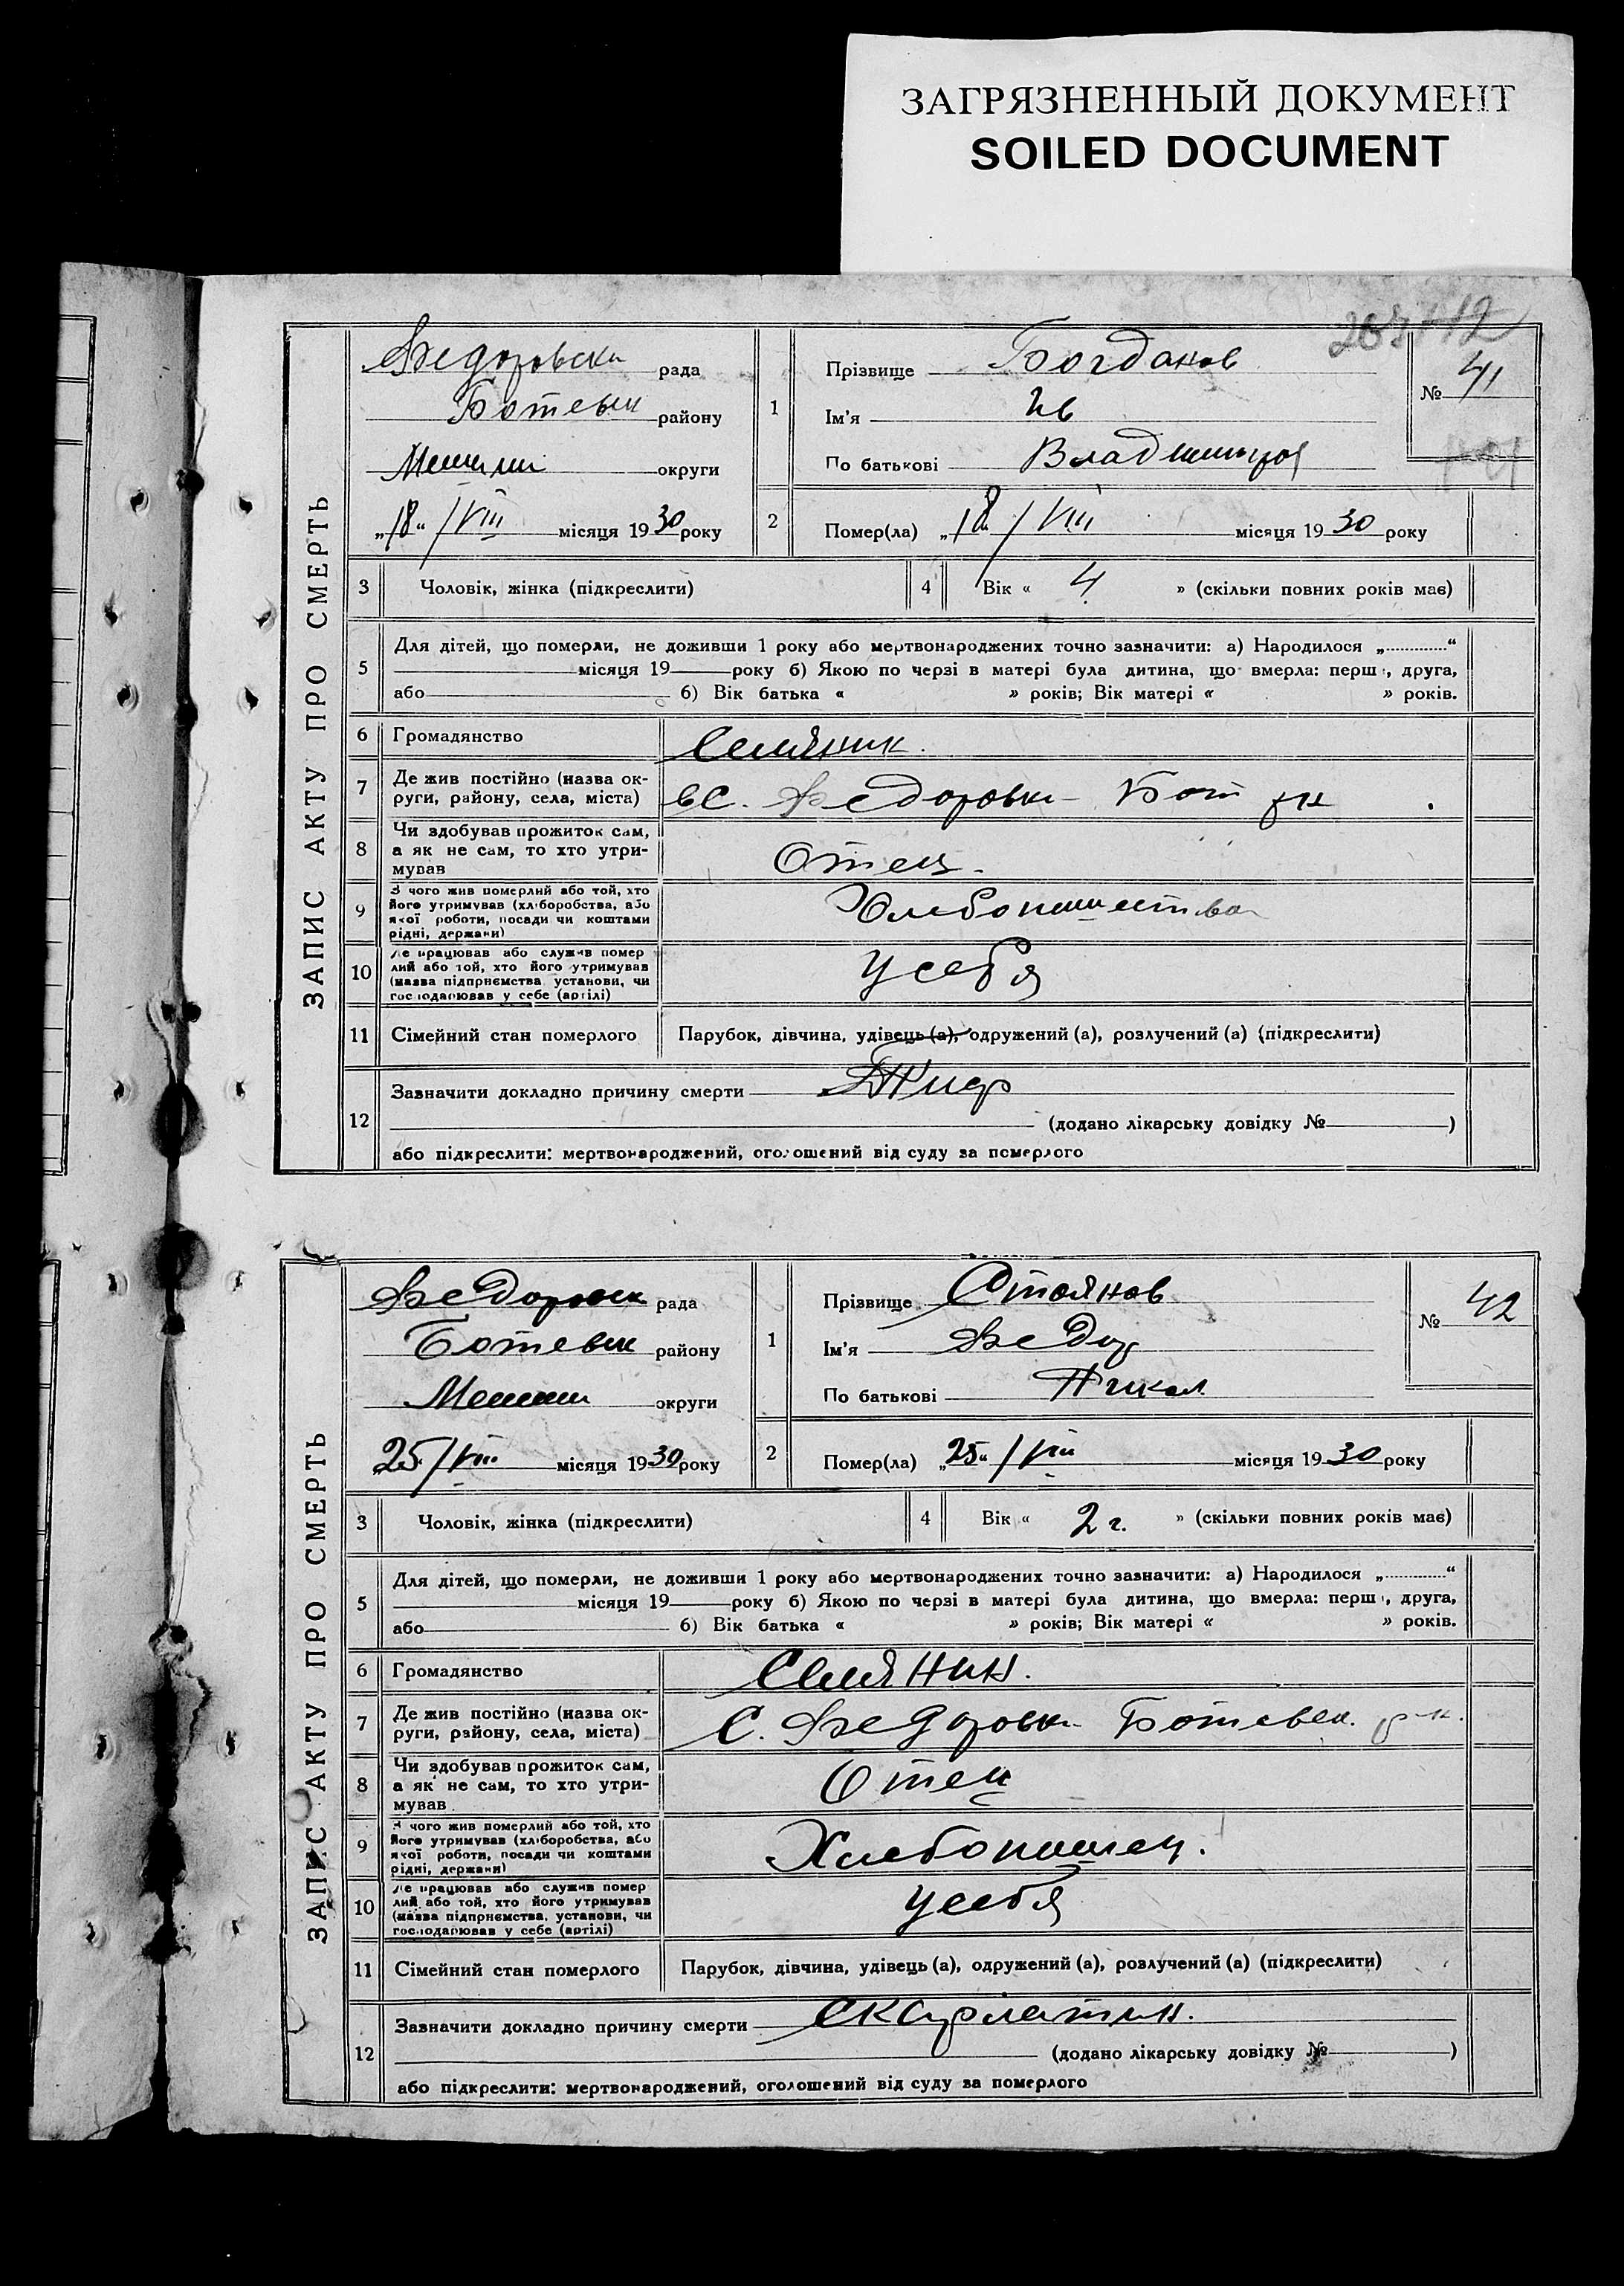 ЗАГРЯЗНЕННЫЙ ДОКУМЕНТ
SOILED DOCUMENT
ЗАПИС АКТУ ПРО СМЕРТЬ
Федоровска рада
Ботевск району
округи
„18“ /VIII місяця 1930 року
1
Прізвище Богданов
Ім'я Ив
По батькові
№ 41
2
Помер(ла) „18“ /VIII місяця 1930 року
3 Чоловік, жінка (підкреслити)
4 Вік « 4 » (скільки повних років має)
5 Для дітей, що померли, не доживши 1 року або мертвонароджених точно зазначити: а) Народилося „............“
місяця 19 року б) Якою по черзі в матері була дитина, що вмерла: перша, друга,
або б) Вік батька « » років; Вік матері « » років.
6 Громадянство Селяник.
7 Де жив постійно (назва округи, району, села, міста) в с. Федоровка Бот рн
8 Чи здобував прожиток сам,
а як не сам, то хто утримував
Отец.
9 З чого жив померлий або той, хто
його утримував (хліборобства, або
якої роботи, посади чи коштами
рідні, держави)
10 Де працював або служив помер
лий або той, хто його утримував
(назва підприємства, установи, чи
господарював у себе (артілі)
у себя
11 Сімейний стан померлого Парубок, дівчина, удівець (а), одружений (а), розлучений (а) (підкреслити)
12 Зазначити докладно причину смерти
(додано лікарську довідку № )
або підкреслити: мертвонароджений, оголошений від суду за померлого
ЗАПИС АКТУ ПРО СМЕРТЬ
Федоровск рада
Ботевск району
округи
„25“ /VIII місяця 1930 року
1
Прізвище Стоянов
Ім'я Федор
По батькові Никол
№ 42
2
Помер(ла) „25“ /VIII місяця 1930 року
3 Чоловік, жінка (підкреслити)
4 Вік « 2 г. » (скільки повних років має)
5 Для дітей, що померли, не доживши 1 року або мертвонароджених точно зазначити: а) Народилося „............“
місяця 19 року б) Якою по черзі в матері була дитина, що вмерла: перша, друга,
або б) Вік батька « » років; Вік матері « » років.
6 Громадянство Селянин.
7 Де жив постійно (назва округи, району, села, міста) С. Федоровка Ботевск. р-н.
8 Чи здобував прожиток сам,
а як не сам, то хто утримував
Отец
9 З чого жив померлий або той, хто
його утримував (хліборобства, або
якої роботи, посади чи коштами
рідні, держави)
Хлебопашец.
10 Де працював або служив помер
лий або той, хто його утримував
(назва підприємства, установи, чи
господарював у себе (артілі)
у себя
11 Сімейний стан померлого Парубок, дівчина, удівець (а), одружений (а), розлучений (а) (підкреслити)
12 Зазначити докладно причину смерти Скарлатин.
(додано лікарську довідку № )
або підкреслити: мертвонароджений, оголошений від суду за померлого